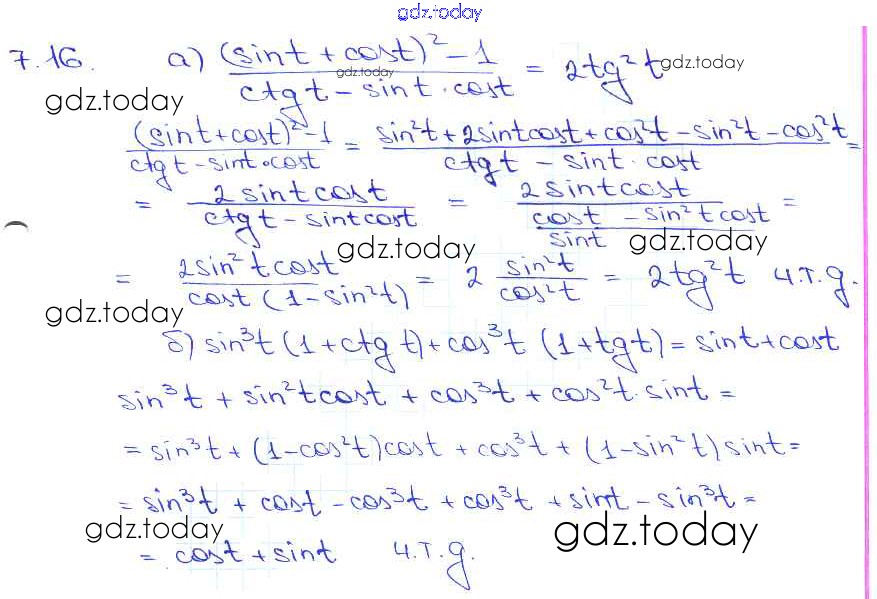 gdz.today
7.16. а) ((sint + cost)² - 1)/(ctg t - sint · cost) = 2tg²t gdz.today
gdz.today
gdz.today
((sint + cost)² - 1)/(ctg t - sint · cost) = (sin²t + 2sintcost + cos²t - sin²t - cos²t)/(ctg t - sint · cost) =
= (2sintcost)/(ctg t - sintcost) = (2sintcost)/((cost - sin²t cost)/sint) =
gdz.today gdz.today
= (2sin²t cost)/(cost (1 - sin²t)) = 2 sin²t/cos²t = 2tg²t ч.т.g.
gdz.today
б) sin³t (1 + ctg t) + cos³t (1 + tgt) = sint + cost
sin³t + sin²tcost + cos³t + cos²t · sint =
= sin³t + (1 - cos²t)cost + cos³t + (1 - sin²t) sint =
= sin³t + cost - cos³t + cos³t + sint - sin³t =
gdz.today gdz.today
= cost + sint ч.т.g.